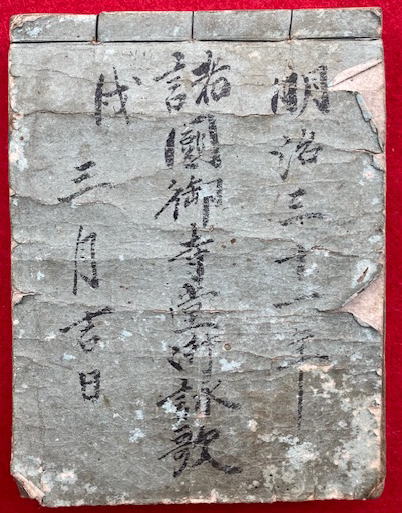 明治三十一年
諸國御寺堂御詠歌
戌
三月吉日